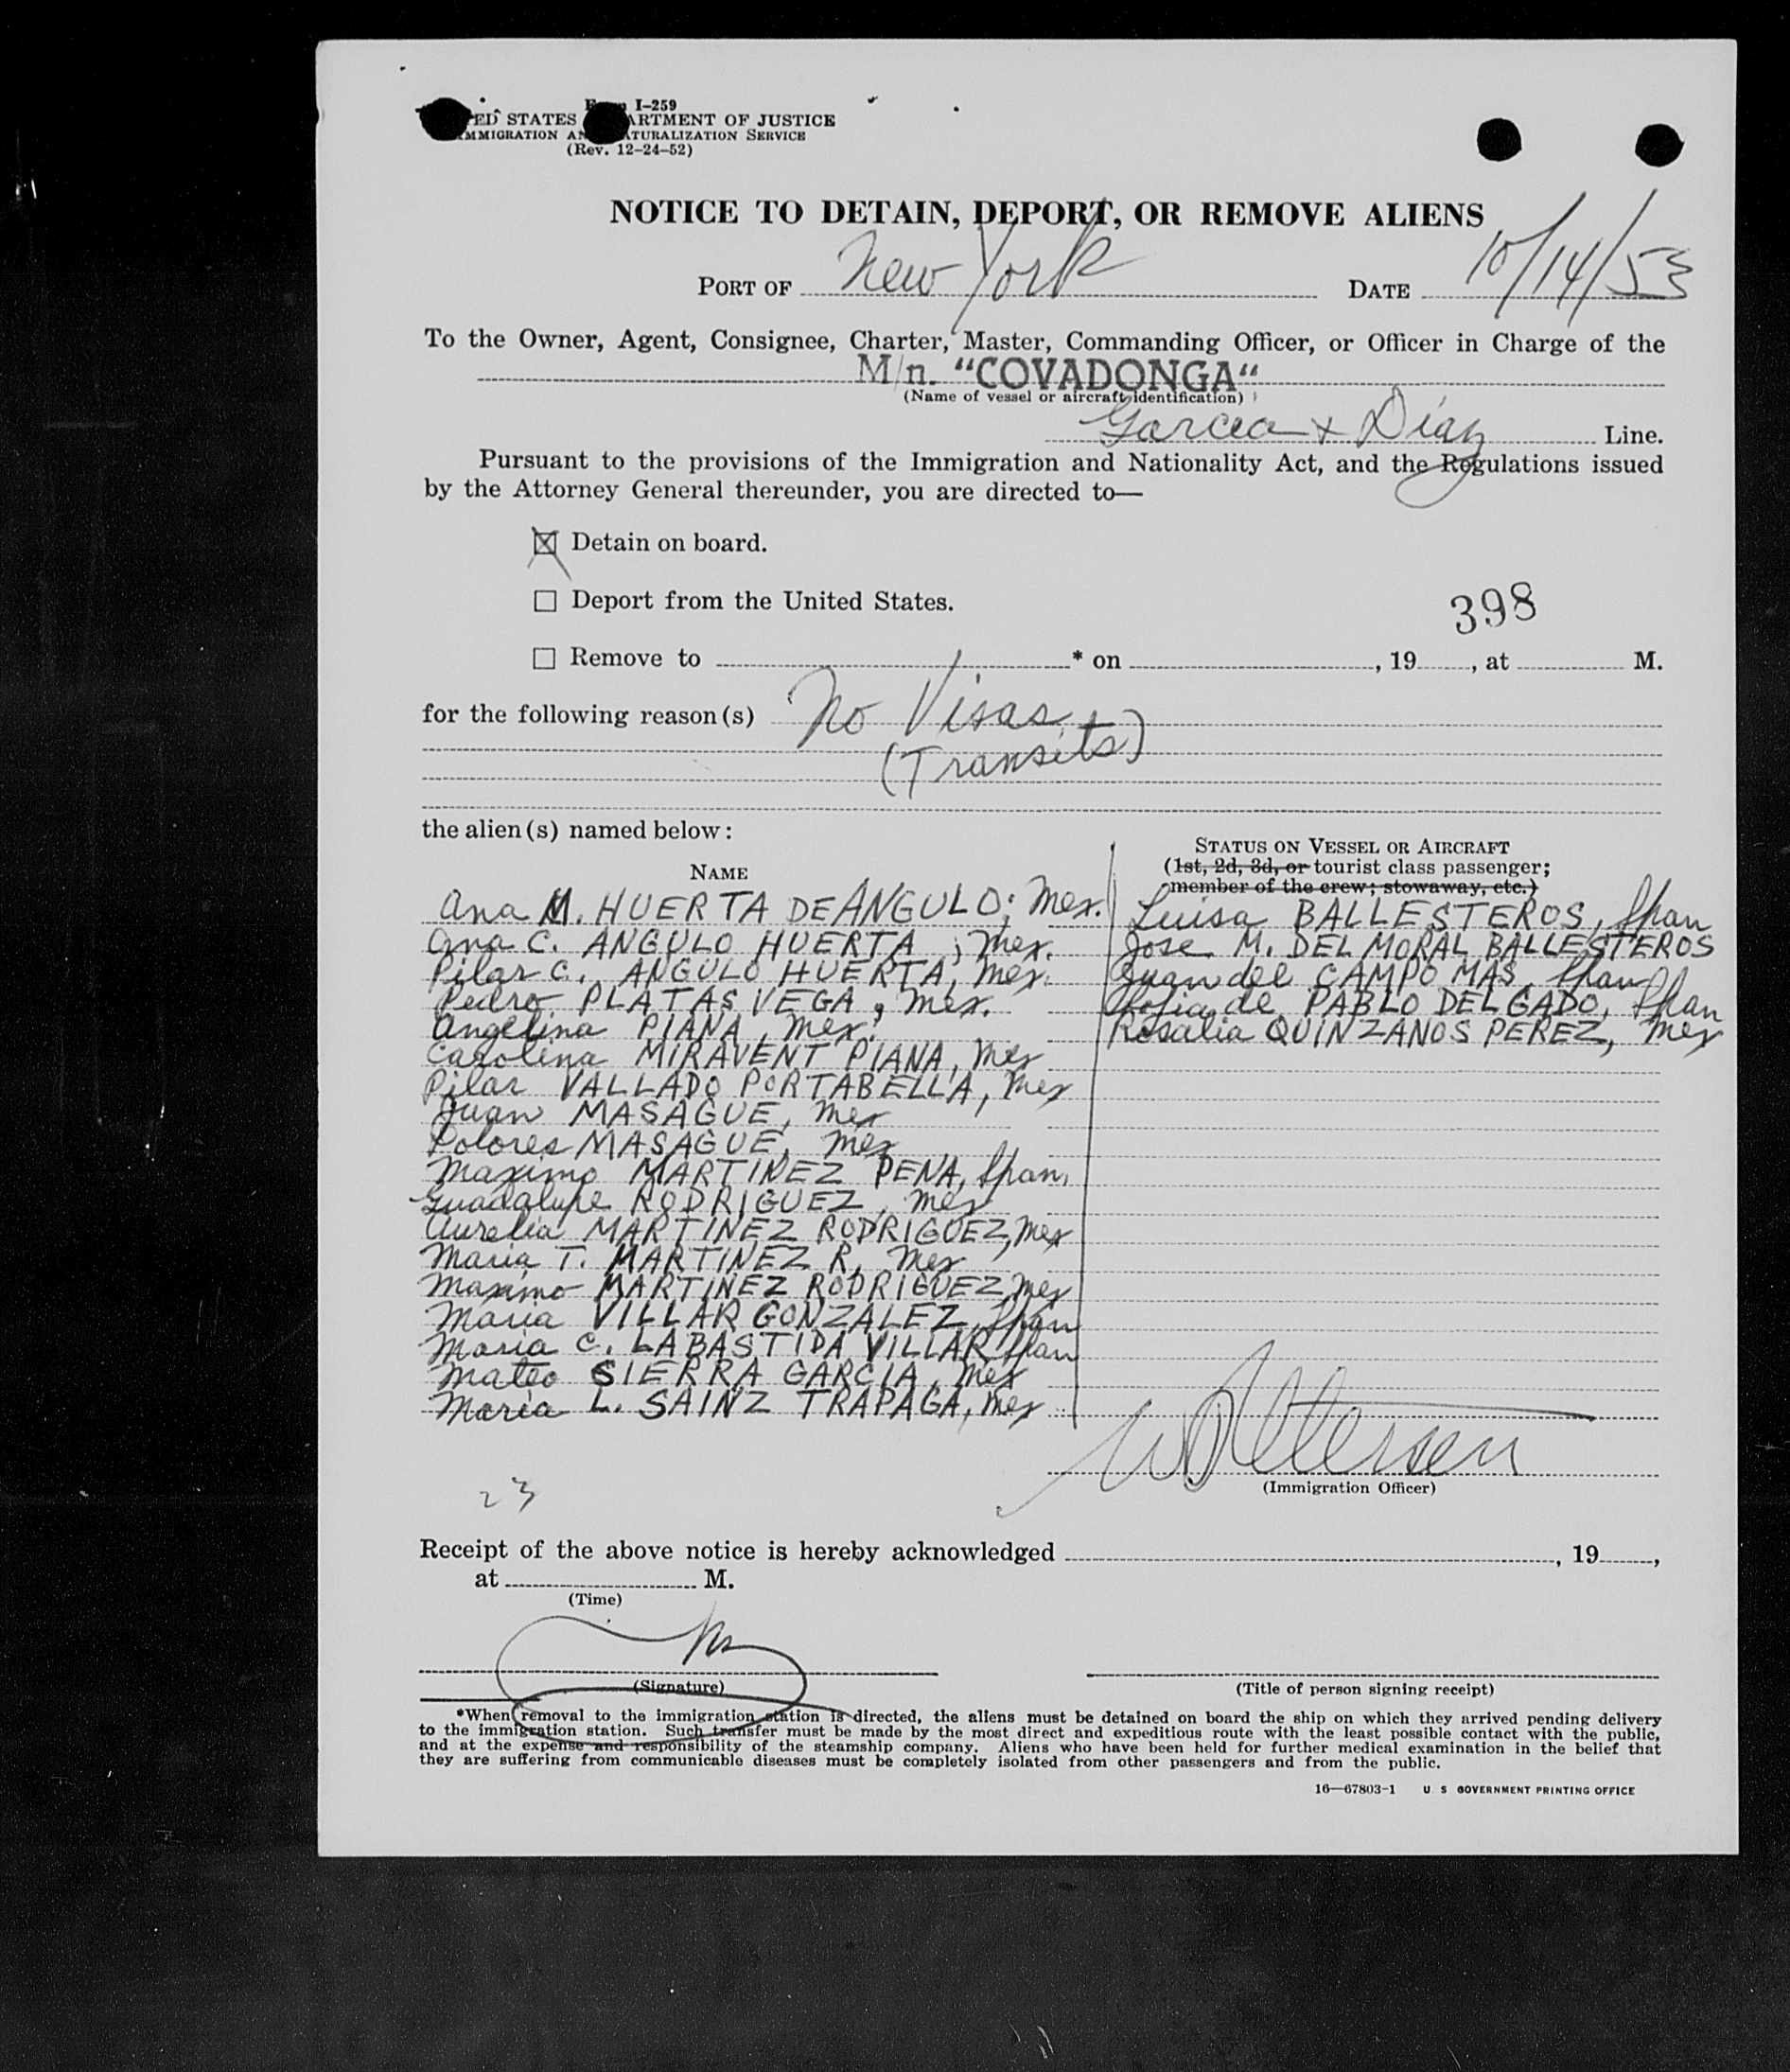 Form I-259
UNITED STATES DEPARTMENT OF JUSTICE
IMMIGRATION AND NATURALIZATION SERVICE
(Rev. 12-24-52)
NOTICE TO DETAIN, DEPORT, OR REMOVE ALIENS
PORT OF New York DATE 10/14/53
To the Owner, Agent, Consignee, Charter, Master, Commanding Officer, or Officer in Charge of the
M/n. "COVADONGA"
(Name of vessel or aircraft identification)
Garcia + Diaz Line.
Pursuant to the provisions of the Immigration and Nationality Act, and the Regulations issued
by the Attorney General thereunder, you are directed to—
☒ Detain on board.
☐ Deport from the United States.
398
☐ Remove to * on , 19 , at M.
for the following reason(s) No Visas
(Transits)
the alien(s) named below:
NAME
Ana M. HUERTA DE ANGULO; Mex.
Ana C. ANGULO HUERTA, Mex.
Pilar C. ANGULO HUERTA, Mex.
Pedro PLATAS VEGA, Mex.
Angelina PIANA, Mex.
Carolina MIRAVENT PIANA, Mex
Pilar VALLADO PORTABELLA, Mex
Juan MASAGUE, Mex
Dolores MASAGUE, Mex
Maximo MARTINEZ PENA, Span.
Guadalupe RODRIGUEZ, Mex
Aurelia MARTINEZ RODRIGUEZ, Mex
Maria T. MARTINEZ R, Mex
Maximo MARTINEZ RODRIGUEZ, Mex
Maria VILLAR GONZALEZ, Span
Maria C. LABASTIDA VILLAR, Span
Mateo SIERRA GARCIA, Mex
Maria L. SAINZ TRAPAGA, Mex
STATUS ON VESSEL OR AIRCRAFT
(1st, 2d, 3d, or tourist class passenger;
member of the crew; stowaway, etc.)
Luisa BALLESTEROS, Span
Jose M. DEL MORAL BALLESTEROS
Juan del CAMPO MAS, Span
Sofia de PABLO DELGADO, Span
Rosalia QUINZANOS PEREZ, Mex
(Immigration Officer)
23
Receipt of the above notice is hereby acknowledged , 19 ,
at M.
(Time)
(Signature)
(Title of person signing receipt)
*When removal to the immigration station is directed, the aliens must be detained on board the ship on which they arrived pending delivery
to the immigration station. Such transfer must be made by the most direct and expeditious route with the least possible contact with the public,
and at the expense and responsibility of the steamship company. Aliens who have been held for further medical examination in the belief that
they are suffering from communicable diseases must be completely isolated from other passengers and from the public.
16—67803-1 U. S. GOVERNMENT PRINTING OFFICE